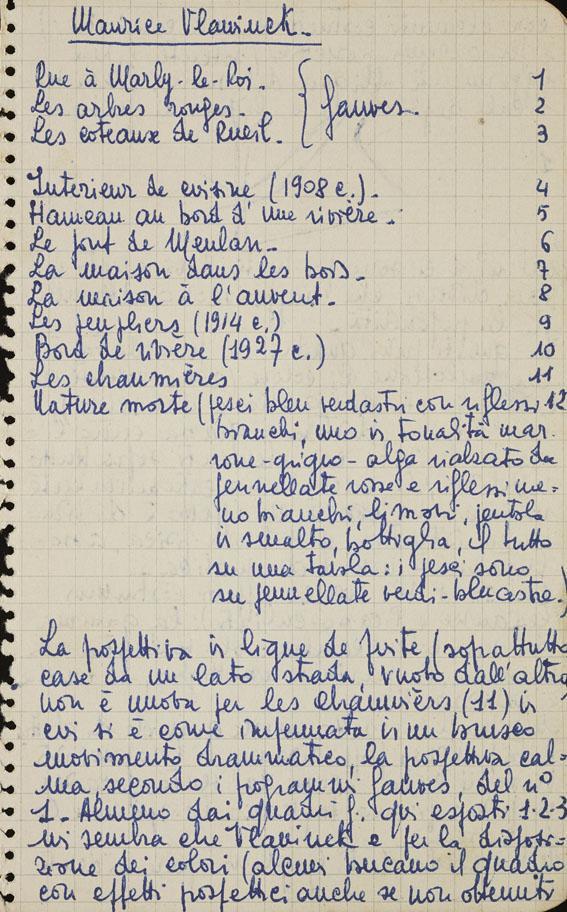 Maurice Vlaminck.
Rue à Marly-le-Roi. 1
Les arbres rouges. fauves. 2
Les coteaux de Rueil. 3
Interieur de cuisine (1908 c.). 4
Hameau au bord d'une rivière. 5
Le pont de Meulan. 6
La maison dans les bois. 7
La maison à l'auvent. 8
Les peupliers (1914 c.) 9
Bord de rivière (1927 c.) 10
Les chaumières 11
Nature morte (pesci bleu verdastri con riflessi 12
bianchi, uno in tonalità mar-
rone-grigio-alga rialzato da
pennellate rosse e riflessi me-
no bianchi, limoni, pentola
in smalto, bottiglia, il tutto
su una tavola: i pesci sono
su pennellate verdi-bluastre.)
La prospettiva in ligne de fuite (soprattutto
case da un lato strada, vuoto dall'altro
non è nuova per les chaumièrs (11) in
cui si è come impennata in un brusco
movimento drammatico, la prospettiva cal-
ma, secondo i programmi fauves, del n°
1. Almeno dai quadri f. qui esposti 1-2-3
mi sembra che Vlaminck e per la disposi-
zione dei colori (alcuni bucano il quadro
con effetti prospettici anche se non ottenuti